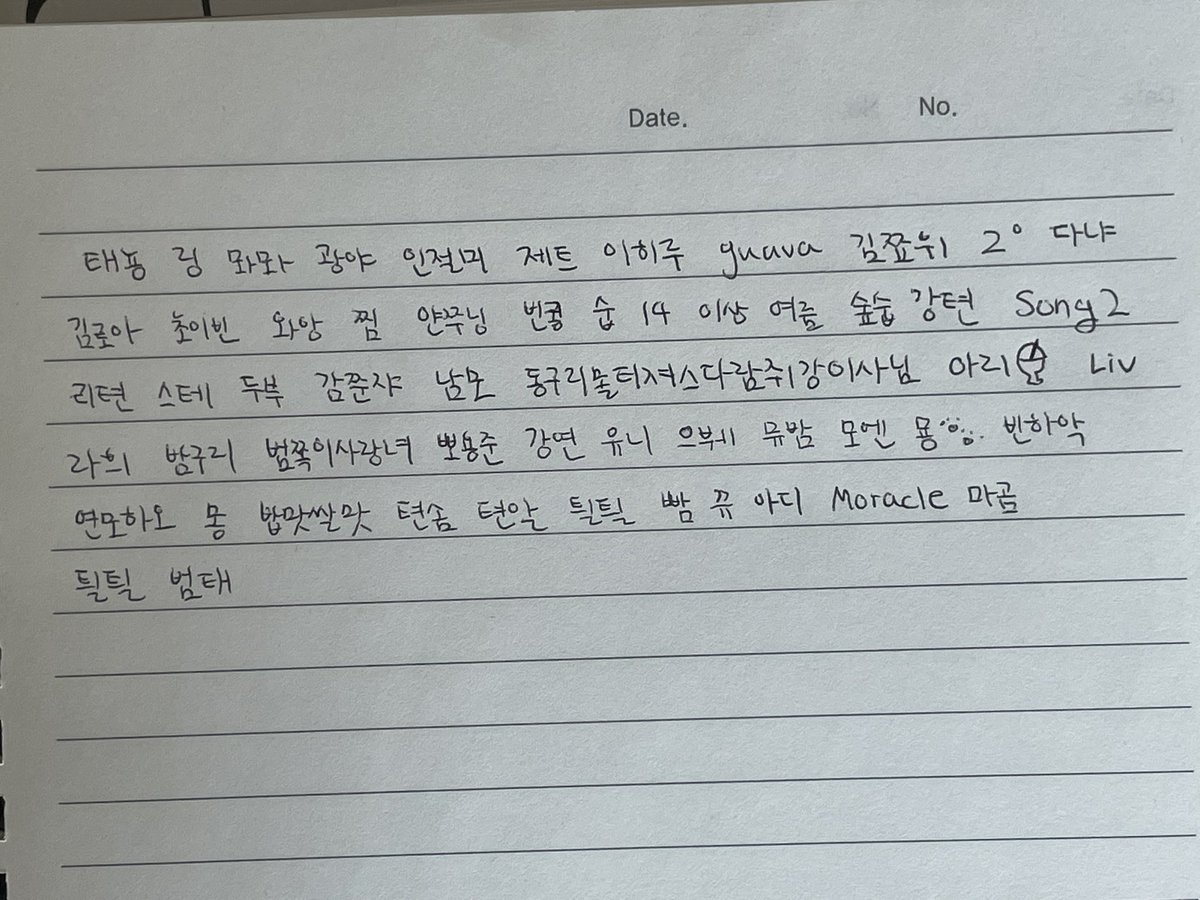 Date. No.
태풍 링 뫄뫄 광야 인절미 제트 이히루 guava 김쬬위 2° 다냐
김로아 초이빈 와앙 찜 얀쭈닝 번콩 숩 14 이상 여름 숲숩 강텬 Song2
리텬 스테 두부 감쭌쟈 남모 동구리몰티져스다람쥐강이사님 아리 Liv
라희 밤구리 범쪽이사랑녀 뽀용준 강연 유니 으부ㅔ 뮤밤 모엔 묭 빈하악
연모하오 몽 밥맛쌀맛 텬솜 텬알 틸틸 빰 뀨 아디 Moracle 마곰
틸틸 범태